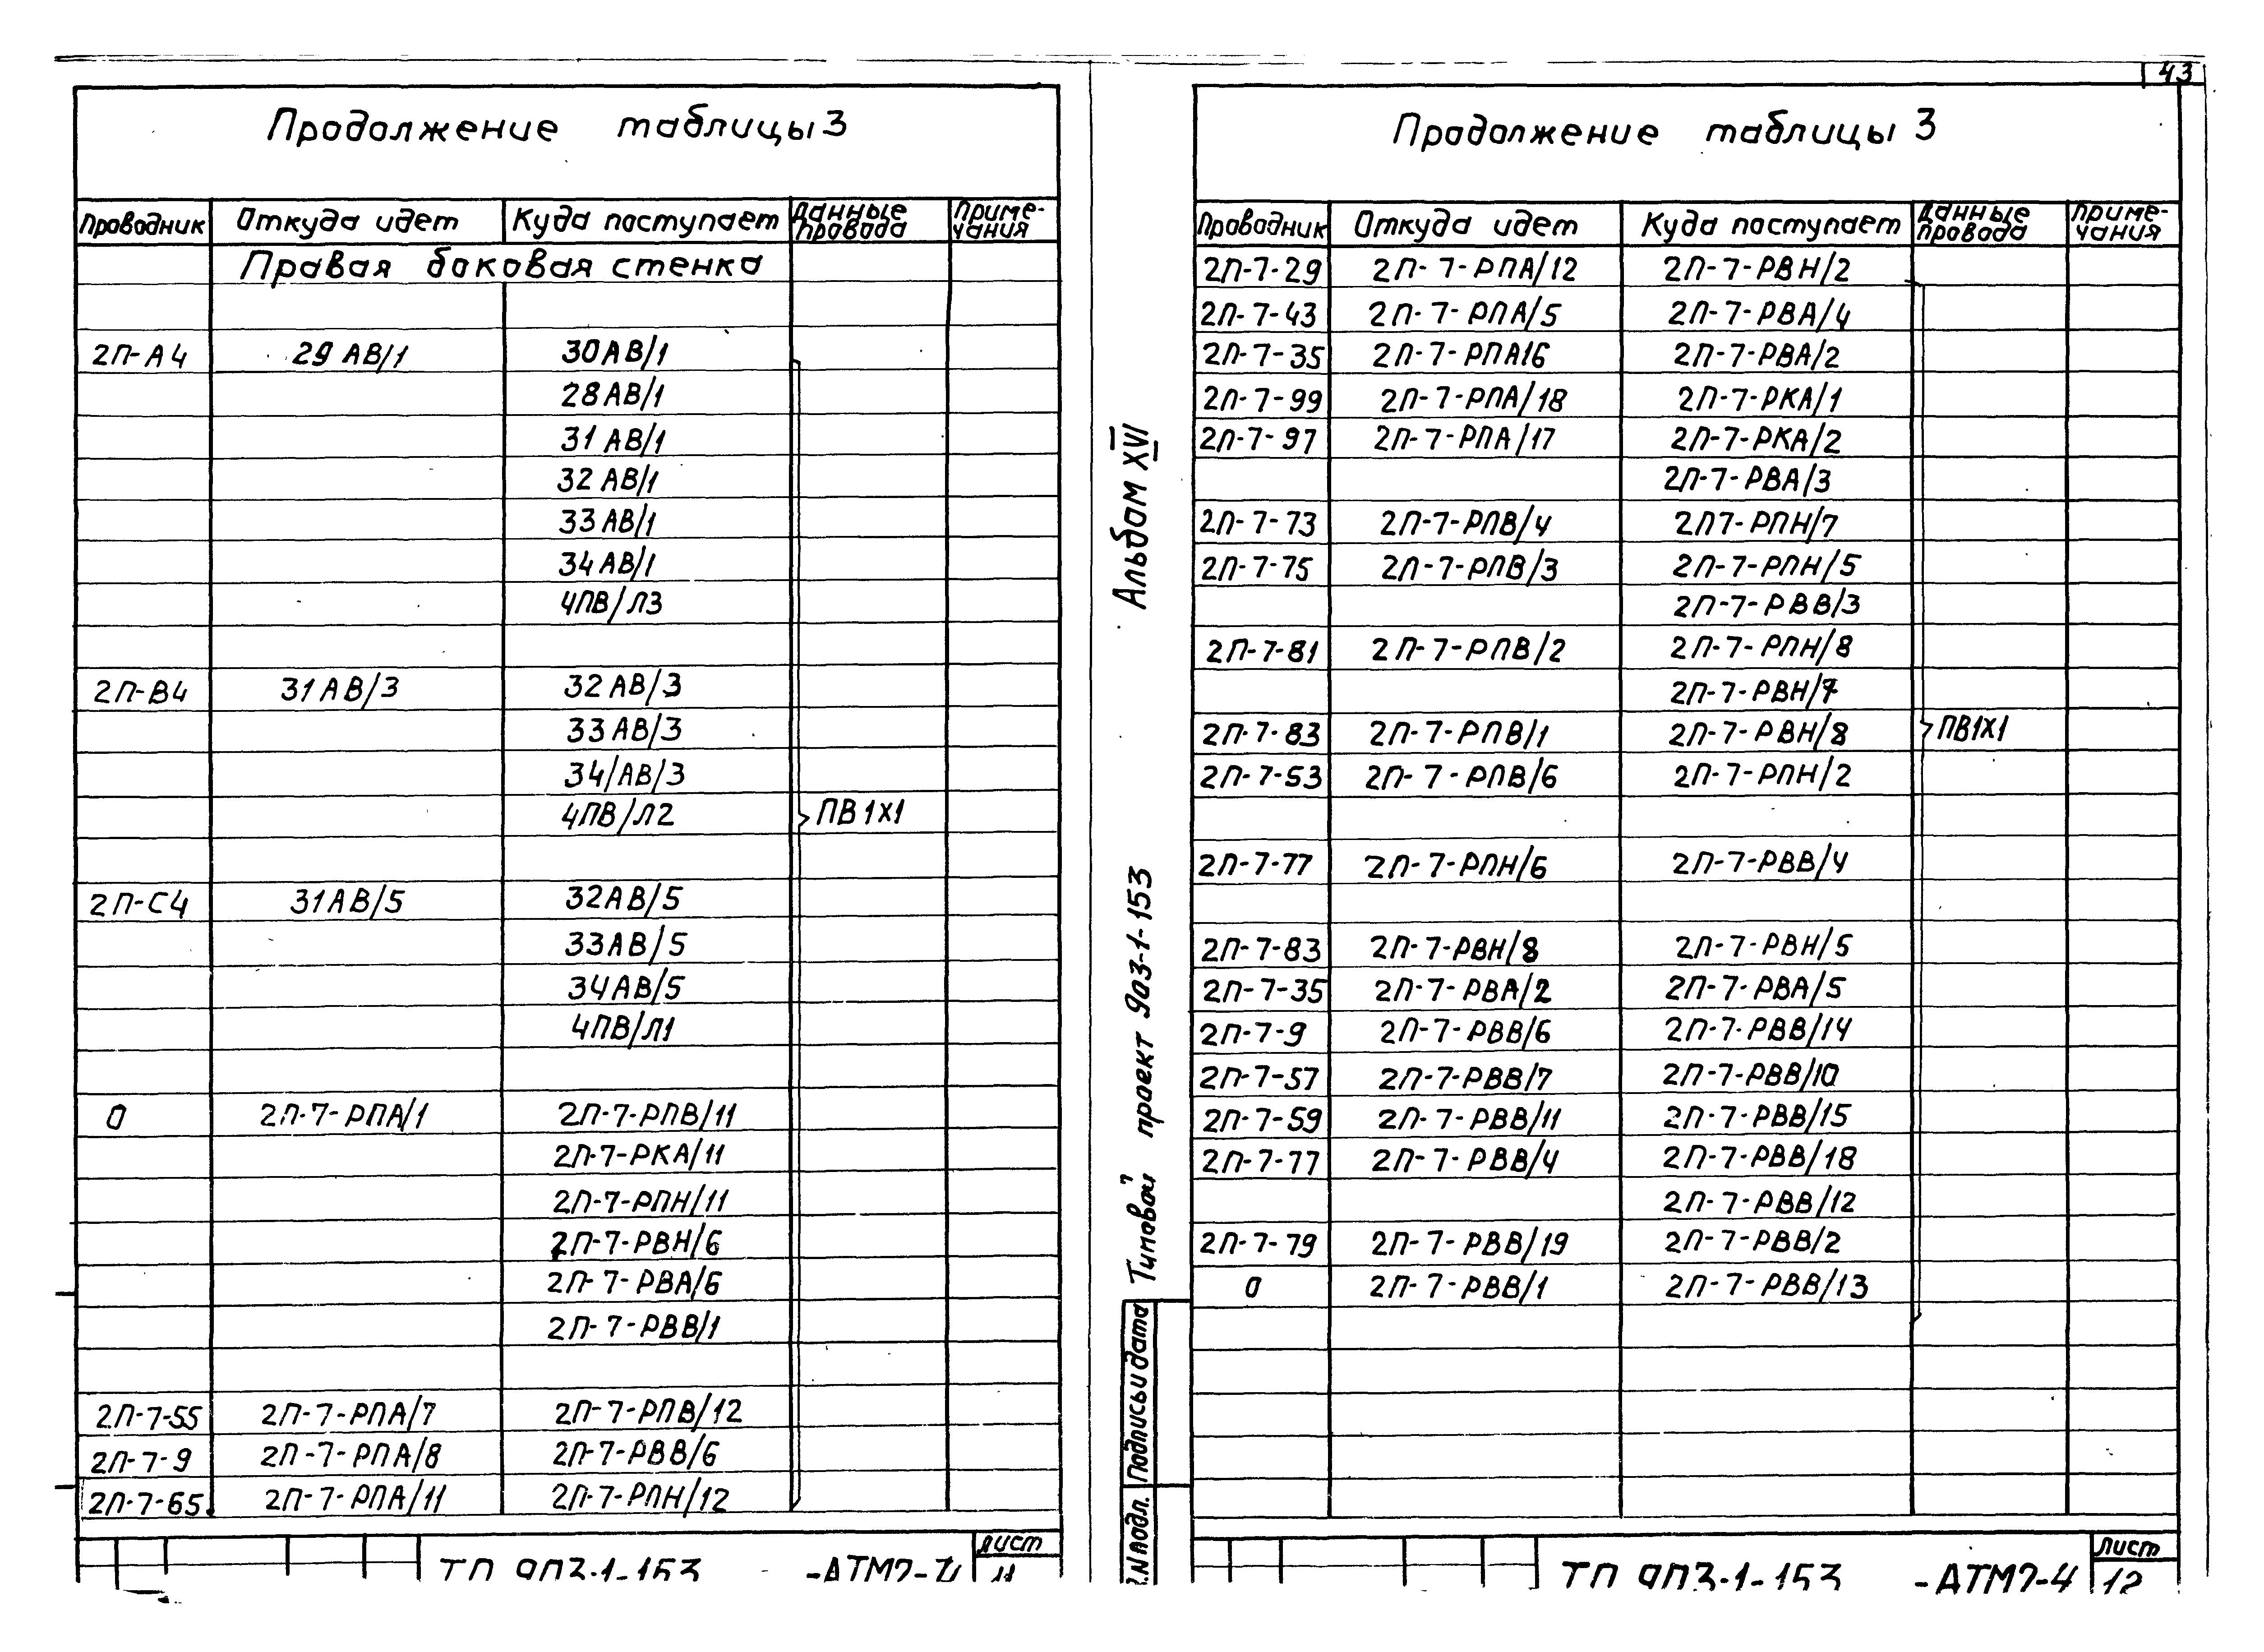 43
Продолжение таблицы 3
Проводник Откуда идет Куда поступает Данные провода Приме-чания
Правая боковая стенка
2П-А4 29 АВ/1 30АВ/1
28АВ/1
31 АВ/1
32 АВ/1
33 АВ/1
34 АВ/1
4ПВ/Л3
2П-В4 31 АВ/3 32 АВ/3
33 АВ/3
34/АВ/3
4ПВ/Л2 ПВ 1х1
2П-С4 31АВ/5 32АВ/5
33АВ/5
34АВ/5
4ПВ/Л1
0 2П-7-РПА/1 2П-7-РПВ/11
2П-7-РКА/11
2П-7-РПН/11
2П-7-РВН/6
2П-7-РВА/6
2П-7-РВВ/1
2П-7-55 2П-7-РПА/7 2П-7-РПВ/12
2П-7-9 2П-7-РПА/8 2П-7-РВВ/6
2П-7-65 2П-7-РПА/11 2П-7-РПН/12
лист
ТП 903-1-153 -АТМ2-4 11
Альбом XVI
Типовой проект 903-1-153
Подпись и дата
Продолжение таблицы 3
Проводник Откуда идет Куда поступает Данные провода Приме-чания
2П-7-29 2П-7-РПА/12 2П-7-РВН/2
2П-7-43 2П-7-РПА/5 2П-7-РВА/4
2П-7-35 2П-7-РПА16 2П-7-РВА/2
2П-7-99 2П-7-РПА/18 2П-7-РКА/1
2П-7-97 2П-7-РПА/17 2П-7-РКА/2
2П-7-РВА/3
2П-7-73 2П-7-РПВ/4 2П7-РПН/7
2П-7-75 2П-7-РПВ/3 2П-7-РПН/5
2П-7-РВВ/3
2П-7-81 2П-7-РПВ/2 2П-7-РПН/8
2П-7-РВН/7
2П-7-83 2П-7-РПВ/1 2П-7-РВН/8 ПВ1х1
2П-7-53 2П-7-РПВ/6 2П-7-РПН/2
2П-7-77 2П-7-РПН/6 2П-7-РВВ/4
2П-7-83 2П-7-РВН/8 2П-7-РВН/5
2П-7-35 2П-7-РВА/2 2П-7-РВА/5
2П-7-9 2П-7-РВВ/6 2П-7-РВВ/14
2П-7-57 2П-7-РВВ/7 2П-7-РВВ/10
2П-7-59 2П-7-РВВ/11 2П-7-РВВ/15
2П-7-77 2П-7-РВВ/4 2П-7-РВВ/18
2П-7-РВВ/12
2П-7-79 2П-7-РВВ/19 2П-7-РВВ/2
0 2П-7-РВВ/1 2П-7-РВВ/13
Лист
ТП 903-1-153 -АТМ2-4 12